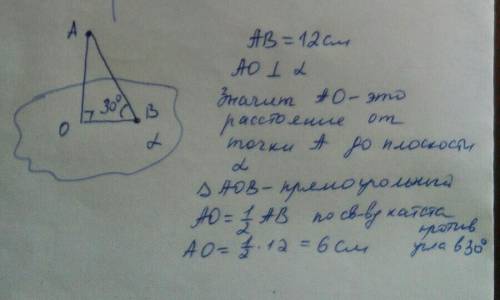 A
30°
O
B
α
AB = 12 см
AO ⊥ α
Значит AO - это
расстояние от
точки A до плоскости
α
Δ AOB - прямоугольный
AO = 1/2 AB по св-ву катета
против
угла в 30°
AO = 1/2 · 12 = 6 см